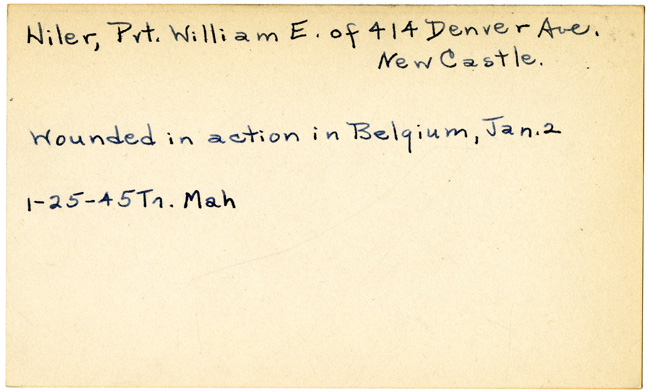 Niler, Pvt. William E. of 414 Denver Ave.
New Castle.
Wounded in action in Belgium, Jan. 2
1-25-45 Tr. Mah